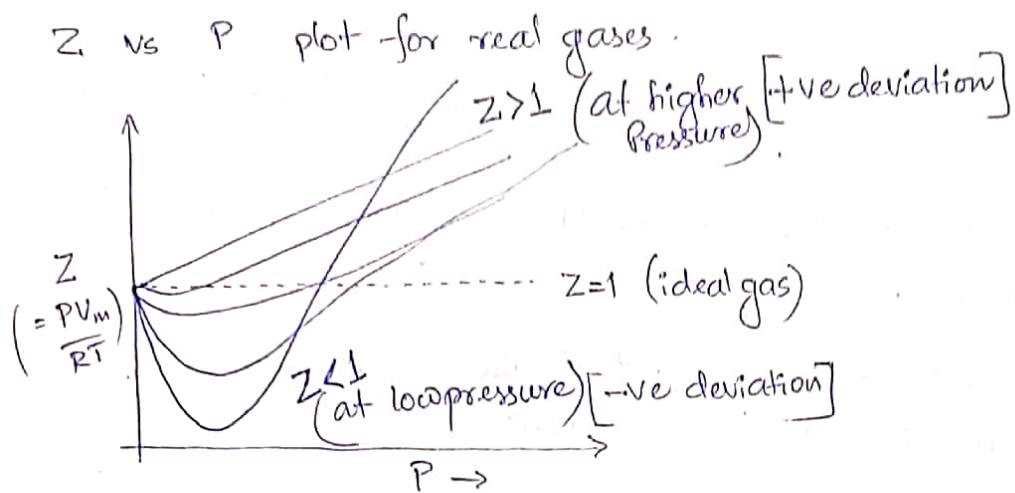 Z vs P plot for real gases.
Z>1 (at higher Pressure) [+ve deviation]
Z
(= PVm/RT)
Z=1 (ideal gas)
Z<1
(at low pressure) [-ve deviation]
P →